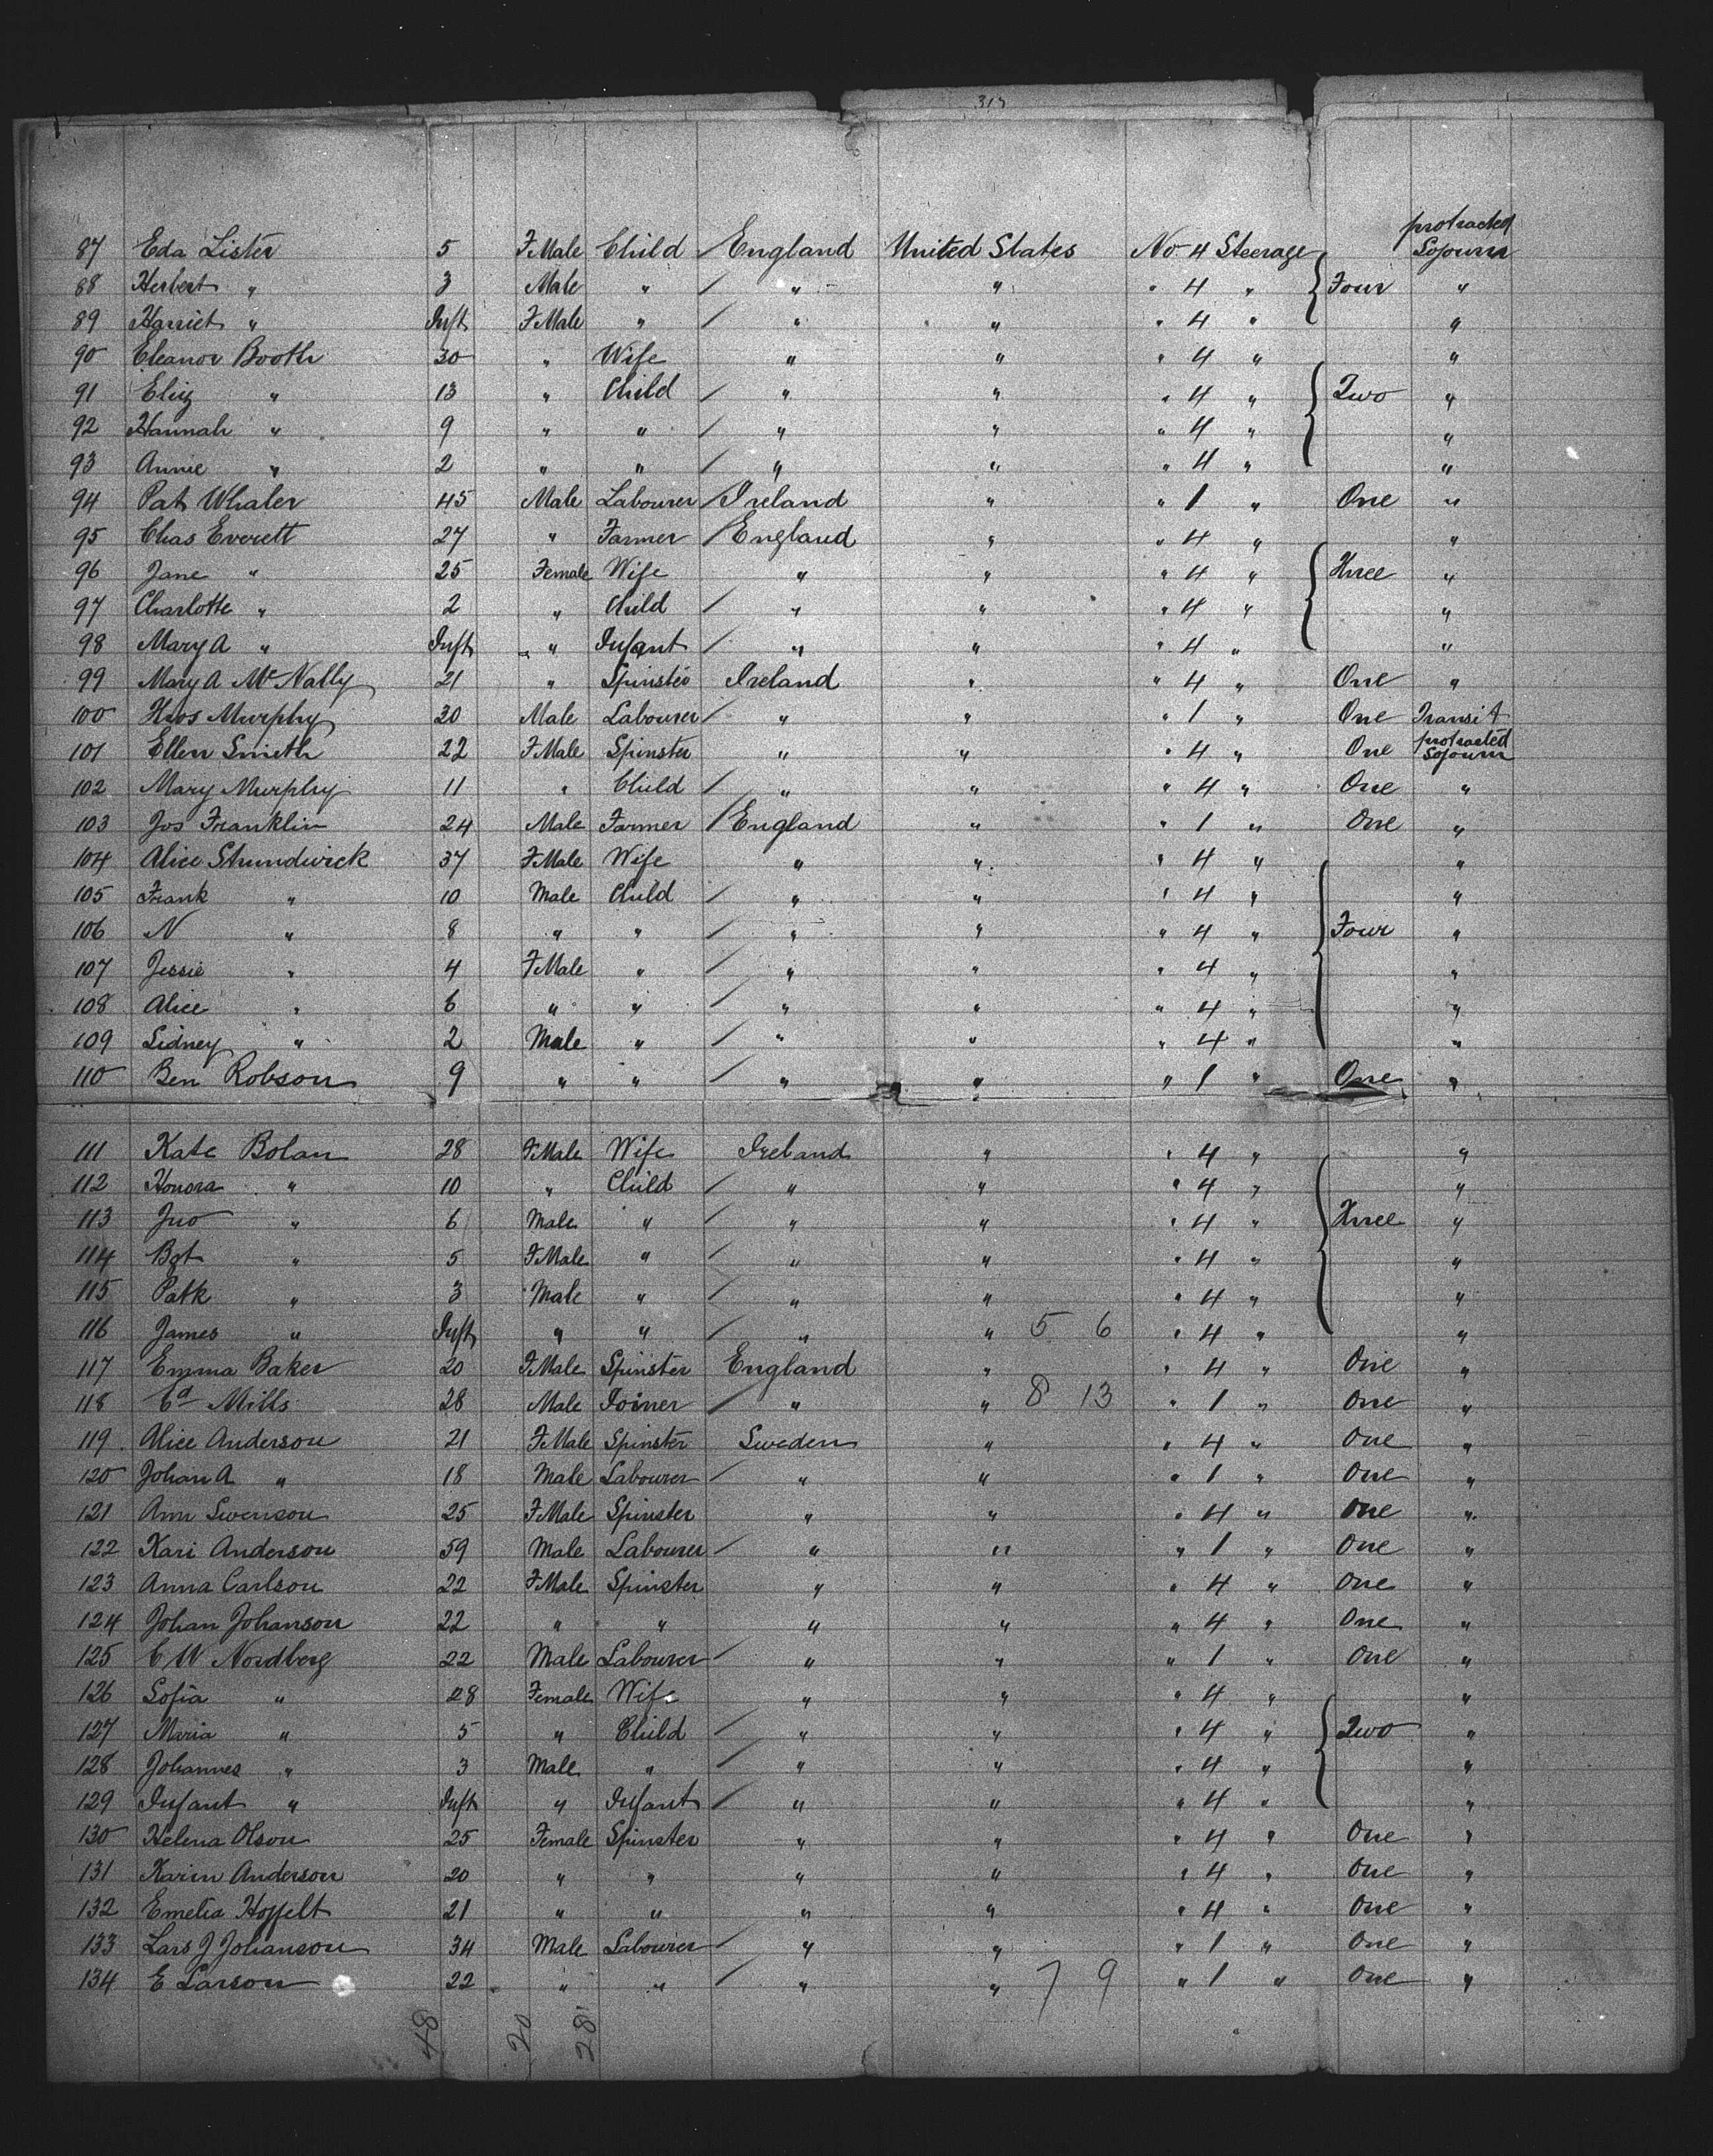 317
protracted
87 Eda Lister 5 FMale Child England United States No 4 Steerage Sojourn
88 Herbert " 3 Male " / " " " 4 " Four "
89 Harriet " Inft FMale " / " " " 4 " "
90 Eleanor Booth 30 " Wife " " " 4 " "
91 Eliz " 13 " Child / " " " 4 " Two "
92 Hannah " 9 " " / " " " 4 " "
93 Annie " 2 " " / " " " 4 " "
94 Pat Whaler 45 Male Labourer / Ireland " " 1 " One "
95 Chas Everett 27 " Farmer / England " " 4 " "
96 Jane " 25 Female Wife " " " 4 " Three "
97 Charlotte " 2 " Child / " " " 4 " "
98 Mary A " Inft " Infant / " " " 4 " "
99 Mary A McNally 21 " Spinster Ireland " " 4 " One "
100 Thos Murphy 30 Male Labourer / " " " 1 " One Transit
101 Ellen Smith 22 FMale Spinster " " " 4 " One protracted Sojourn
102 Mary Murphy 11 " Child / " " " 4 " One "
103 Jos Franklin 24 Male Farmer / England " " 1 " One "
104 Alice Strundwick 37 FMale Wife " " " 4 " "
105 Frank " 10 Male Child / " " " 4 " "
106 N " 8 " " / " " " 4 " Four "
107 Jessie " 4 FMale " / " " " 4 " "
108 Alice " 6 " " / " " " 4 " "
109 Sidney " 2 Male " / " " " 4 " "
110 Ben Robson 9 " " / " " " 1 " One "
111 Kate Bolan 28 FMale Wife Ireland " " 4 " "
112 Honora " 10 " Child / " " " 4 " "
113 Jno " 6 Male " / " " " 4 " Three "
114 Bgt " 5 FMale " / " " " 4 " "
115 Patk " 3 Male " / " " " 4 " "
116 James " Inft " " / " " 5 6 " 4 " "
117 Emma Baker 20 FMale Spinster England " " 4 " One "
118 Ed Mills 28 Male Joiner / " " 8 13 " 1 " One "
119 Alice Anderson 21 FMale Spinster Sweden " " 4 " One "
120 Johan A " 18 Male Labourer / " " " 1 " One "
121 Ann Swenson 25 FMale Spinster " " " 4 " One "
122 Kari Anderson 59 Male Labourer / " " " 1 " One "
123 Anna Carlson 22 FMale Spinster " " " 4 " One "
124 Johan Johanson 22 " " " " " 4 " One "
125 C W Nordberg 22 Male Labourer / " " " 1 " One "
126 Sofia " 28 Female Wife " " " 4 " "
127 Maria " 5 " Child / " " " 4 " Two "
128 Johannes " 3 Male " / " " " 4 " "
129 Infant " Inft " Infant / " " " 4 " "
130 Helena Olson 25 Female Spinster " " " 4 " One "
131 Karin Anderson 20 " " " " " 4 " One "
132 Emelia 21 " " " " " 4 " One "
133 Lars J Johanson 34 Male Labourer / " " " 1 " One "
134 E Larson 22 " " / " " 7 9 " 1 " One "
48 20 28